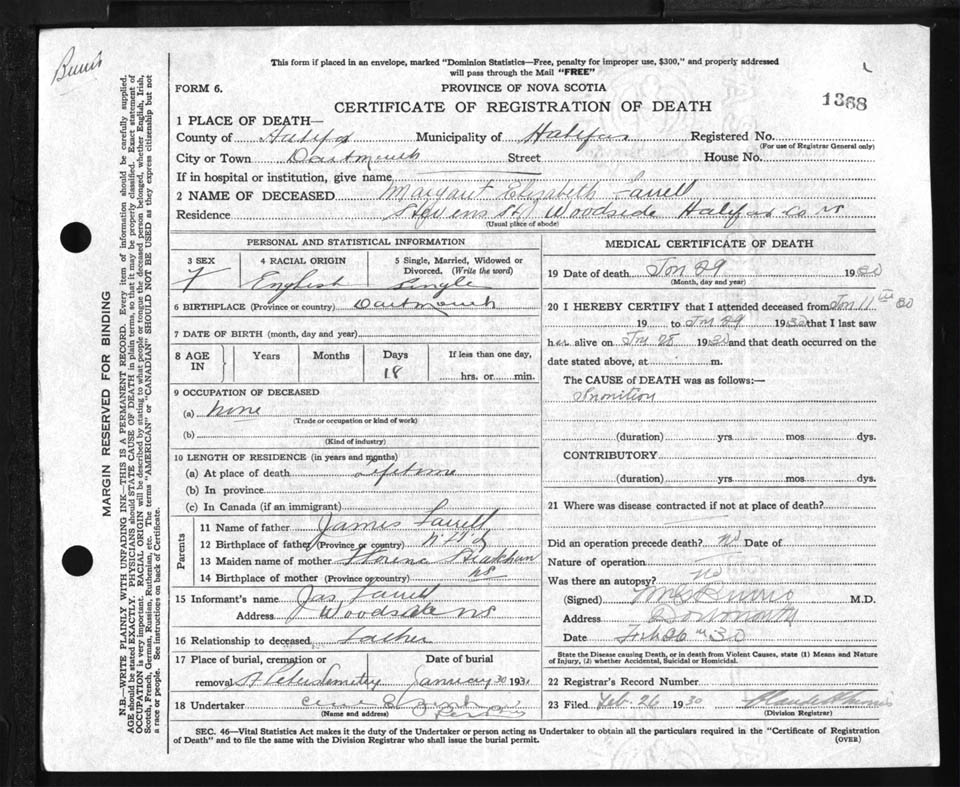 Burris
This form if placed in an envelope, marked "Dominion Statistics—Free, penalty for improper use, $300," and properly addressed
will pass through the Mail "FREE"
FORM 6.
PROVINCE OF NOVA SCOTIA
1368
CERTIFICATE OF REGISTRATION OF DEATH
1 PLACE OF DEATH—
County of Halifax Municipality of Halifax Registered No.
(For use of Registrar General only)
City or Town Dartmouth Street House No.
If in hospital or institution, give name
2 NAME OF DECEASED Margaret Elizabeth
Residence Stevens St Woodside Halifax Co NS
(Usual place of abode)
PERSONAL AND STATISTICAL INFORMATION
3 SEX
F
4 RACIAL ORIGIN
English
5 Single, Married, Widowed or
Divorced. (Write the word)
Single
6 BIRTHPLACE (Province or country) Dartmouth
7 DATE OF BIRTH (month, day and year)
8 AGE IN
Years Months Days If less than one day,
18 hrs. or min.
9 OCCUPATION OF DECEASED
(a) None
(Trade or occupation or kind of work)
(b)
(Kind of industry)
10 LENGTH OF RESIDENCE (in years and months)
(a) At place of death Lifetime
(b) In province
(c) In Canada (if an immigrant)
Parents
11 Name of father James
12 Birthplace of father (Province or country) Nfld
13 Maiden name of mother
14 Birthplace of mother (Province or country) NS
15 Informant's name Jas
Address Woodside NS
16 Relationship to deceased Father
17 Place of burial, cremation or Date of burial
removal St Peters Cemetery January 30 193
18 Undertaker
(Name and address)
MEDICAL CERTIFICATE OF DEATH
19 Date of death Jan 29 1930
(Month, day and year)
20 I HEREBY CERTIFY that I attended deceased from Jan 11th 30
19 to Jan 29 1930 that I last saw
her alive on Jan 28 1930 and that death occurred on the
date stated above, at m.
The CAUSE of DEATH was as follows:—
Inanition
(duration) yrs. mos dys.
CONTRIBUTORY
(duration) yrs. mos dys.
21 Where was disease contracted if not at place of death?
Did an operation precede death? No Date of
Nature of operation
Was there an autopsy? No
(Signed) Burris M.D.
Address Dartmouth
Date Feb 26th 30
State the Disease causing Death, or in death from Violent Causes, state (1) Means and Nature
of Injury, (2) whether Accidental, Suicidal or Homicidal.
22 Registrar's Record Number
23 Filed Feb. 26 1930
(Division Registrar)
SEC. 46—Vital Statistics Act makes it the duty of the Undertaker or person acting as Undertaker to obtain all the particulars required in the "Certificate of Registration
of Death" and to file the same with the Division Registrar who shall issue the burial permit.
(OVER)
MARGIN RESERVED FOR BINDING
N.B.—WRITE PLAINLY WITH UNFADING INK—THIS IS A PERMANENT RECORD. Every item of information should be carefully supplied.
AGE should be stated EXACTLY. PHYSICIANS should STATE CAUSE OF DEATH in plain terms, so that it may be properly classified. Exact statement of
OCCUPATION is very important. RACIAL ORIGIN will be described by stating to what people or tongue the deceased person belonged, whether English, Irish,
Scotch, French, German, Russian, Ruthenian, etc. The terms "AMERICAN" or "CANADIAN" SHOULD NOT BE USED as they express citizenship but not
a race or people. See instructions on back of Certificate.